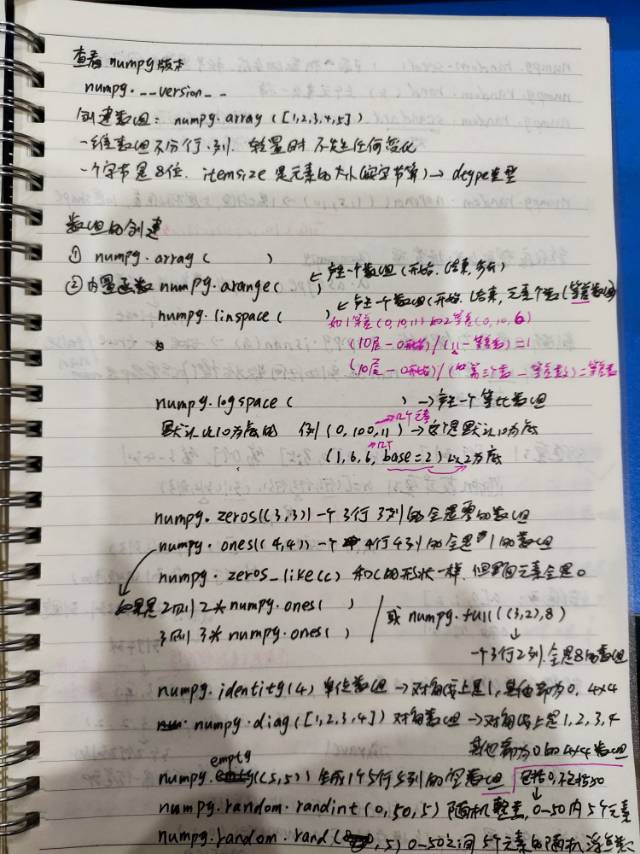 查看numpy版本
numpy.__version__
创建数组: numpy.array([1,2,3,4,5])
一维数组不分行.列. 转置时不发生任何变化
一个字节是8位. itemsize是元素的大小(字节算)→dtype类型
数组的创建
① numpy.array( )
② 内置函数 numpy.arange( ) ← 产生一个数组(开始,结束,步长)
numpy.linspace( ) ← 产生一个数组(开始,结束,元素个数(等差数组)
如1等差(0,10,11) 如2等差(0,10,6)
(10尾-0开始)/(11-等差数)=1
numpy.logspace( ) →产生一个等比数组
默认以10为底的 例(0,100,11)→ 12个元素 这是默认10为底
(1,6,6,base=2)以2为底
numpy.zeros((3,3))一个3行3列的全是零的数组
numpy.ones((4,4))一个4行4列的全是1的数组
numpy.zeros_like(c) 和c的形状一样. 但里面元素全是0
如果是2则2*numpy.ones( ) / 或numpy.full((3,2),8)
3则3*numpy.ones( )
一个3行2列.全是8的数组
numpy.identity(4)单位数组→对角线上是1,其他都为0. 4x4
numpy.diag([1,2,3,4])对角数组→对角线上是1,2,3,4
其他都为0的4x4数组
numpy.empty((5,5))生成1个5行5列的空数组 包括0,不包括50
numpy.random.randint(0,50,5)随机整数,0-50内5个元素
numpy.random.rand( ,5)0-50之间5个元素的随机浮点数